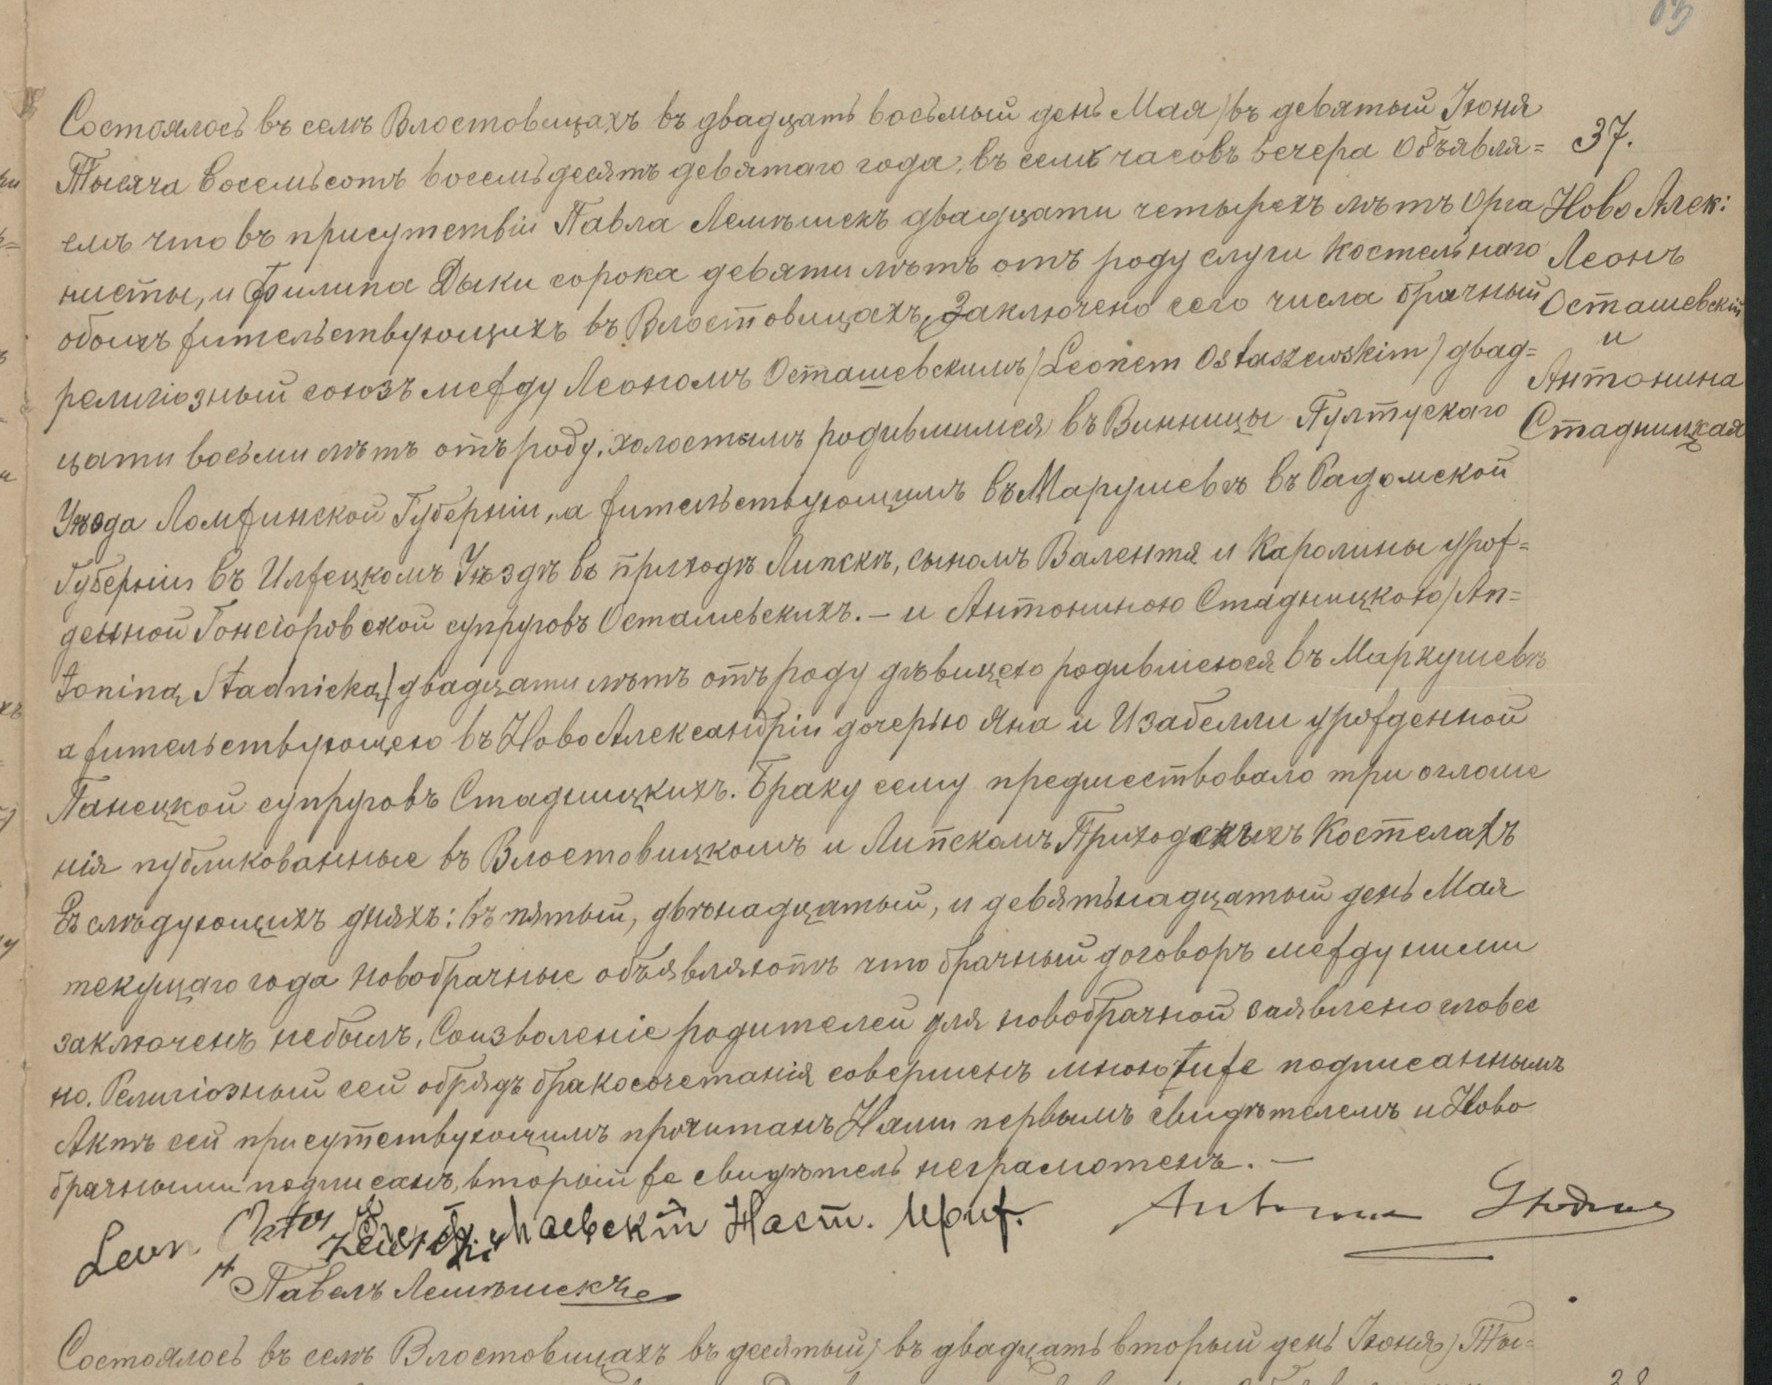 Состоялось въ селѣ Влостовицахъ въ двадцать восьмый день Мая /въ девятый Іюня
Тысяча восемьсотъ восемьдесятъ девятаго года, въ семь часовъ вечера Объявля=
емъ что въ присутствіи Павла Лемѣшекъ двадцати четырехъ лѣтъ Орга
нисты, и Филипа Дыки сорока девяти лѣтъ отъ роду слуги Костельнаго
обоихъ жительствующихъ въ Влостовицахъ, Заключено сего числа брачный
религіозный союзъ между Леономъ Осташевскимъ /Leonem Ostaszewskim/ двад=
цати восьми лѣтъ отъ роду, холостымъ родившимся въ Винницы Пултускаго
Уѣзда Ломжинской Губерніи, а жительствующимъ въ Марушевѣ въ Радомской
Губерніи въ Илжецкомъ Уѣздѣ въ приходѣ Липскѣ, сыномъ Валентя и Каролины урож=
денной Гонсіоровской супруговъ Осташевскихъ. — и Антониною Стадницкою /An=
toniną Stadnicką/ двадцати лѣтъ отъ роду дѣвицею родившеюся въ Маркушевѣ
а жительствующею въ Ново Александріи дочерью Яна и Изабелли урожденной
Панецкой супруговъ Стадницкихъ. Браку сему предшествовало три оглаше
нія публикованные въ Влостовицкомъ и Липскомъ Приходскихъ Костелахъ
Въ слѣдующихъ дняхъ: въ пятый, двѣнадцатый, и девятьнадцатый день Мая
текущаго года новобрачные объявляютъ что брачный договоръ между ними
заключенъ небылъ, Соизволеніе родителей для новобрачной заявлено словес
но. Религіозный сей обрядъ бракосочетанія совершенъ мною тиже подписаннымъ
Актъ сей присутствующимъ прочитанъ Нами первымъ свидѣтелемъ и Ново
брачными подписанъ, вторый же свидѣтель неграмотенъ. —
Leon
Маевскій Наст. Приж.
Antonina
Павелъ Лемѣшекъ
Состоялось въ селѣ Влостовицахъ въ десятый /въ двадцать вторый день Іюня/ Ты=
37.
Ново Алек:
Леонъ
Осташевскій
и
Антонина
Стадницкая